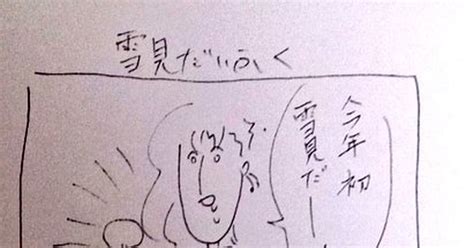 雪見だいふく
今年初
雪見だー